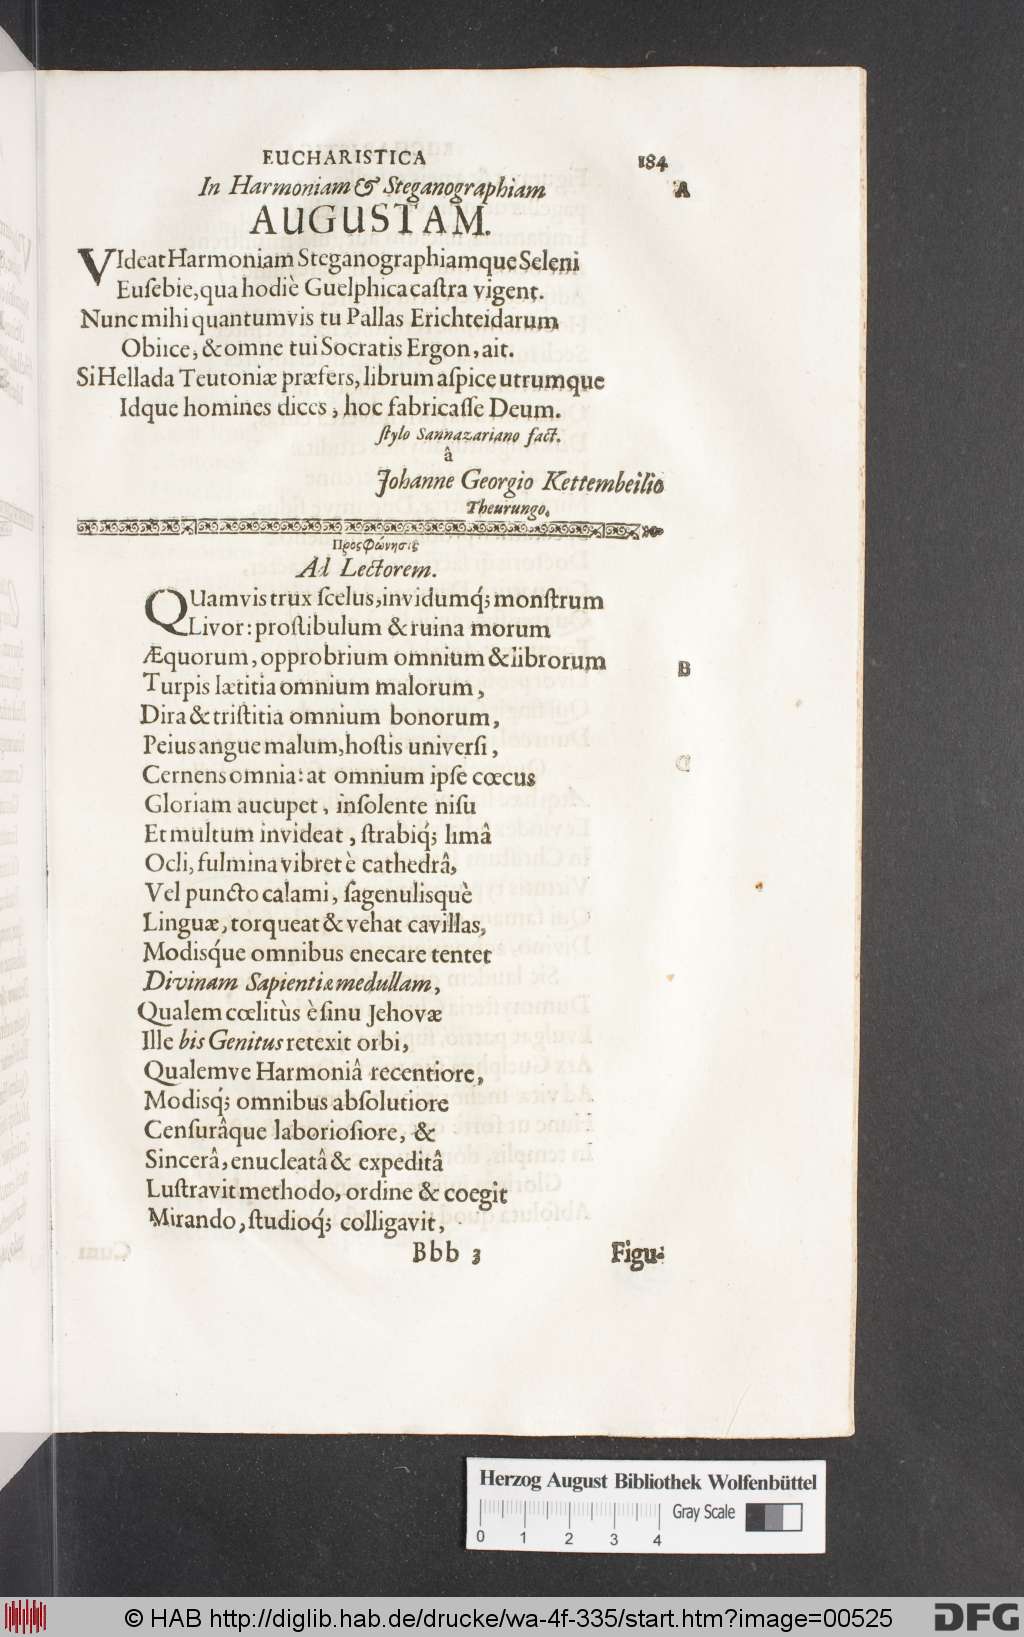 EUCHARISTICA
184
In Harmoniam & Steganographiam
A
AUGUSTAM.
VIdeat Harmoniam Steganographiamque Seleni
Euſebie, qua hodiè Guelphica caſtra vigent.
Nunc mihi quantumvis tu Pallas Erichteidarum
Obiice, & omne tui Socratis Ergon, ait.
Si Hellada Teutoniæ præfers, librum aſpice utrumque
Idque homines dices, hoc fabricaſſe Deum.
ſtylo Sannazariano fact.
â
Johanne Georgio Kettembeilio
Theurungo.
ΠροςΦώνησις
Ad Lectorem.
QUamvis trux ſcelus, invidumq́; monſtrum
Livor: proſtibulum & ruina morum
Æquorum, opprobrium omnium & librorum
B
Turpis lætitia omnium malorum,
Dira & triſtitia omnium bonorum,
Peius angue malum, hoſtis univerſi,
Cernens omnia: at omnium ipſe cœcus
C
Gloriam aucupet, inſolente niſu
Et multum invideat, ſtrabiq́; limâ
Ocli, fulmina vibret è cathedrâ,
Vel puncto calami, ſagenulisquè
Linguæ, torqueat & vehat cavillas,
Modisq́ue omnibus enecare tentet
Divinam Sapientiæ medullam,
Qualem cœlitùs è ſinu Jehovæ
Ille bis Genitus retexit orbi,
Qualemve Harmoniâ recentiore,
Modisq́; omnibus abſolutiore
Cenſurâque laborioſiore, &
Sincerâ, enucleatâ & expeditâ
Luſtravit methodo, ordine & coegit
Mirando, ſtudioq́; colligavit,
Bbb 3
Figu-
Herzog August Bibliothek Wolfenbüttel
Gray Scale
0 1 2 3 4
© HAB http://diglib.hab.de/drucke/wa-4f-335/start.htm?image=00525
DFG